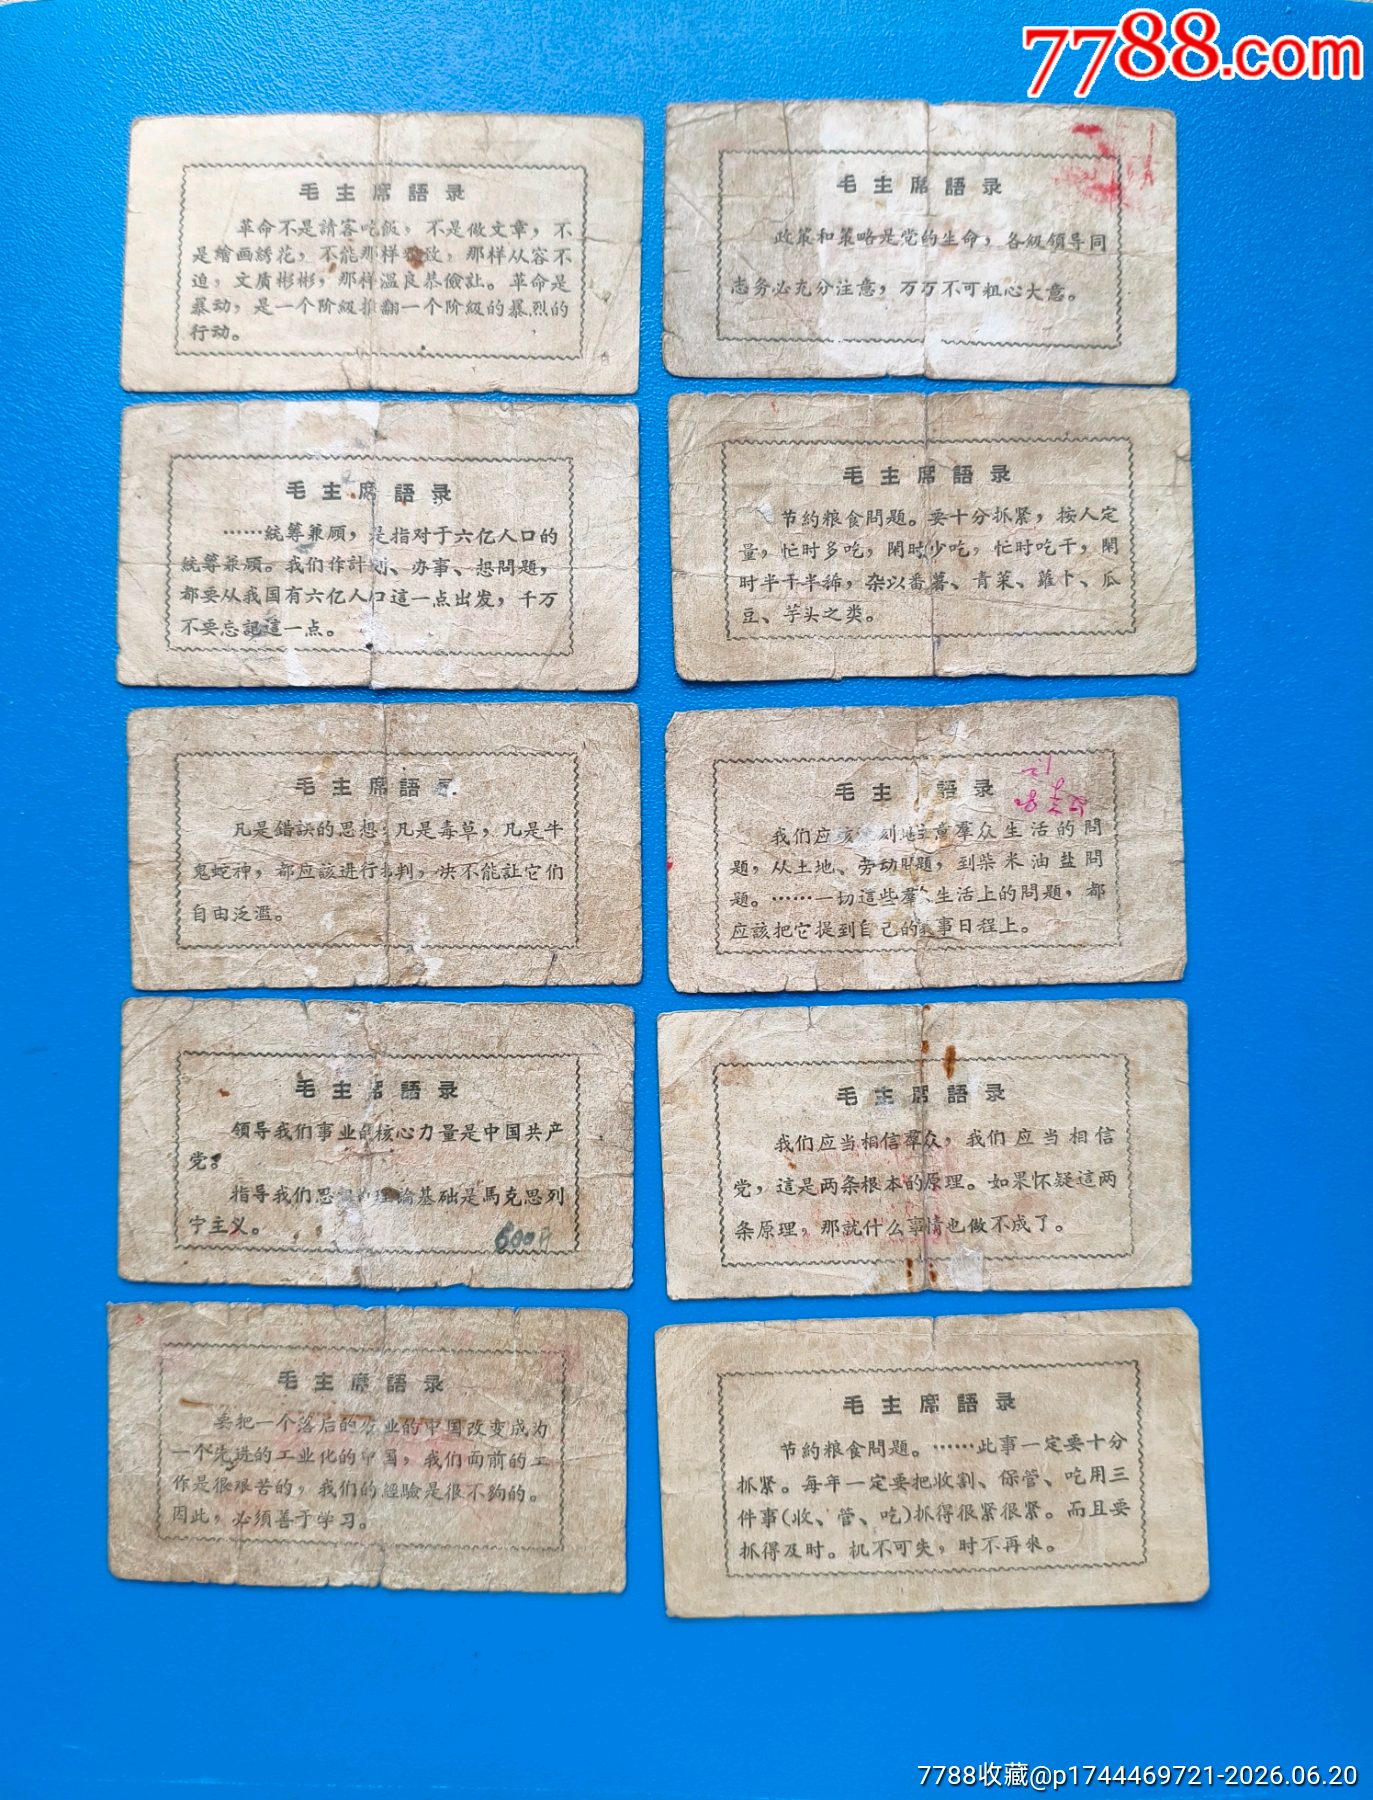 7788.com
毛主席語录
革命不是請客吃飯，不是做文章，不
是繪画綉花，不能那样致，那样从容不
迫，文质彬彬，那样温良恭儉让。革命是
暴动，是一个阶級推翻一个阶級的暴烈的
行动。
毛主席語录
政策和策略是党的生命，各級領导同
志务必充分注意，万万不可粗心大意。
毛主席語录
……統筹兼顾，是指对于六亿人口的
統筹兼顾。我们作計划、办事、想問題，
都要从我国有六亿人口這一点出发，千万
不要忘記這一点。
毛主席語录
节約粮食問題。要十分抓紧，按人定
量，忙时多吃，閑时少吃，忙时吃干，閑
时半干半稀，杂以番薯、青菜、蘿卜、瓜
豆、芋头之类。
毛主席語录
凡是錯誤的思想，凡是毒草，凡是牛
鬼蛇神，都应該进行批判，决不能让它们
自由泛滥。
毛主語录
我们应該深刻地注意羣众生活的問
題，从土地、劳动問題，到柴米油盐問
題。……一切這些羣众生活上的問題，都
应該把它提到自己的議事日程上。
毛主席語录
領导我们事业的核心力量是中国共产
党。
指导我们思想的理論基础是馬克思列
宁主义。
600
毛主席語录
我们应当相信羣众，我们应当相信
党，這是两条根本的原理。如果怀疑這两
条原理，那就什么事情也做不成了。
毛主席語录
要把一个落后的农业的中国改变成为
一个先进的工业化的中国，我们面前的工
作是很艰苦的，我们的經驗是很不夠的。
因此，必須善于学习。
毛主席語录
节約粮食問題。……此事一定要十分
抓紧。每年一定要把收割、保管、吃用三
件事(收、管、吃)抓得很紧很紧。而且要
抓得及时。机不可失，时不再来。
7788收藏@p1744469721-2026.06.20